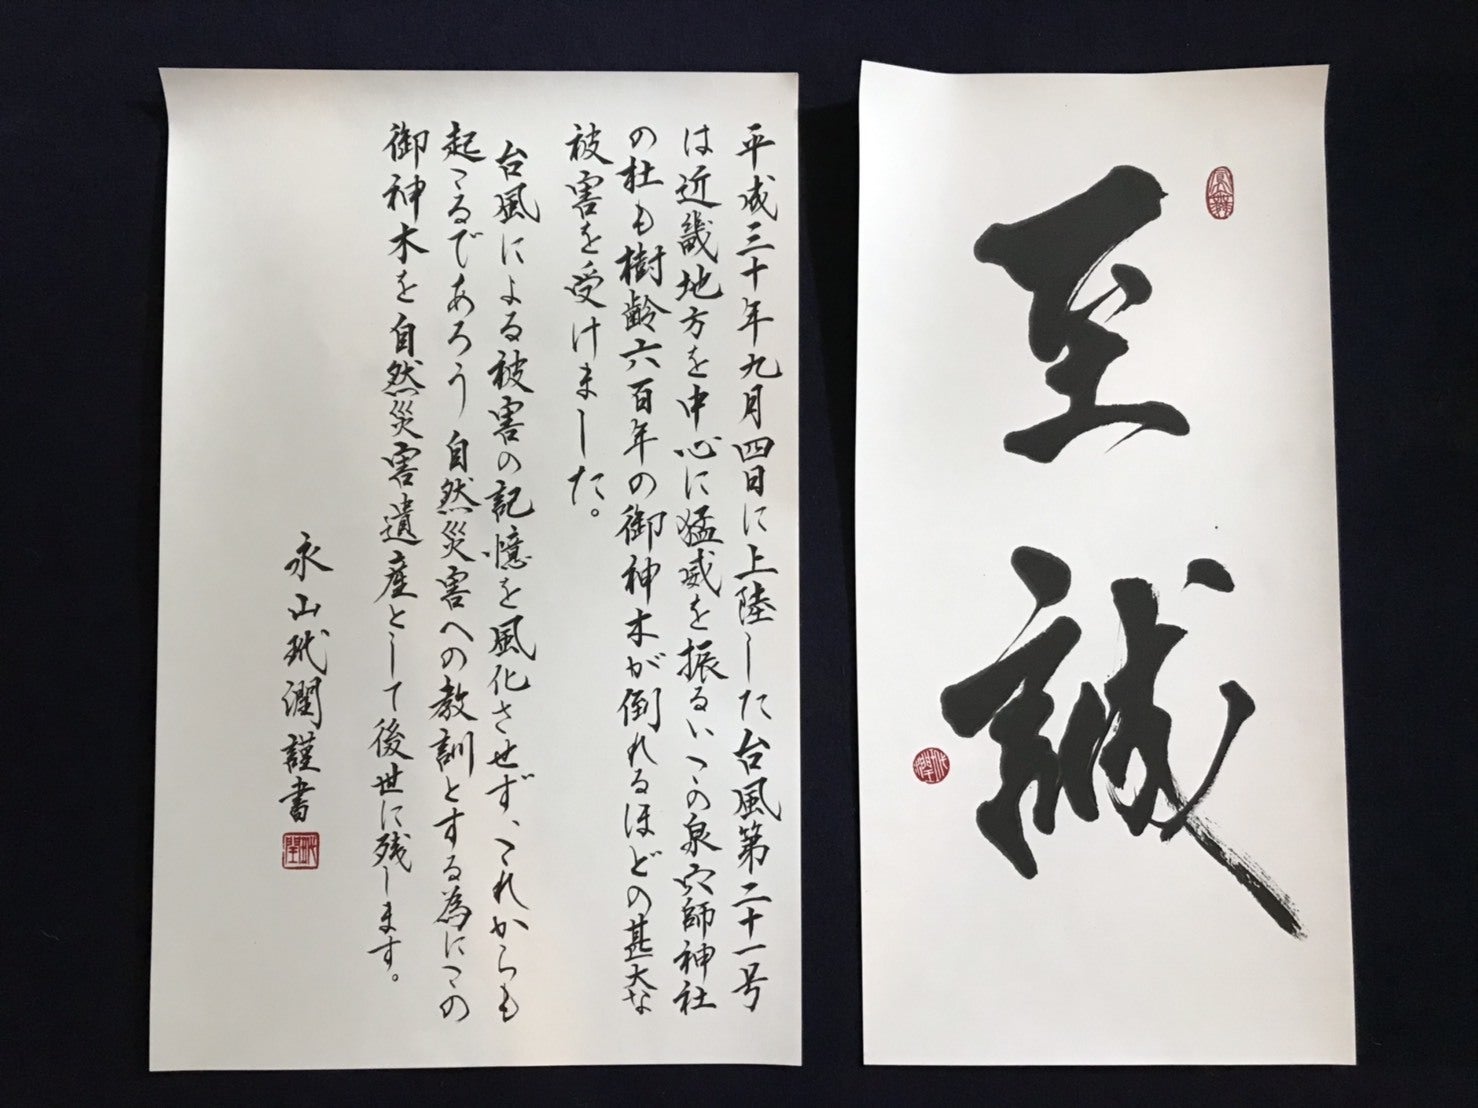 至誠
平成三十年九月四日に上陸した台風第二十一号
は近畿地方を中心に猛威を振るいこの泉穴師神社
の杜も樹齢六百年の御神木が倒れるほどの甚大な
被害を受けました。
台風による被害の記憶を風化させず、これからも
起こるであろう自然災害への教訓とする為にこの
御神木を自然災害遺産として後世に残します。
永山玳潤謹書